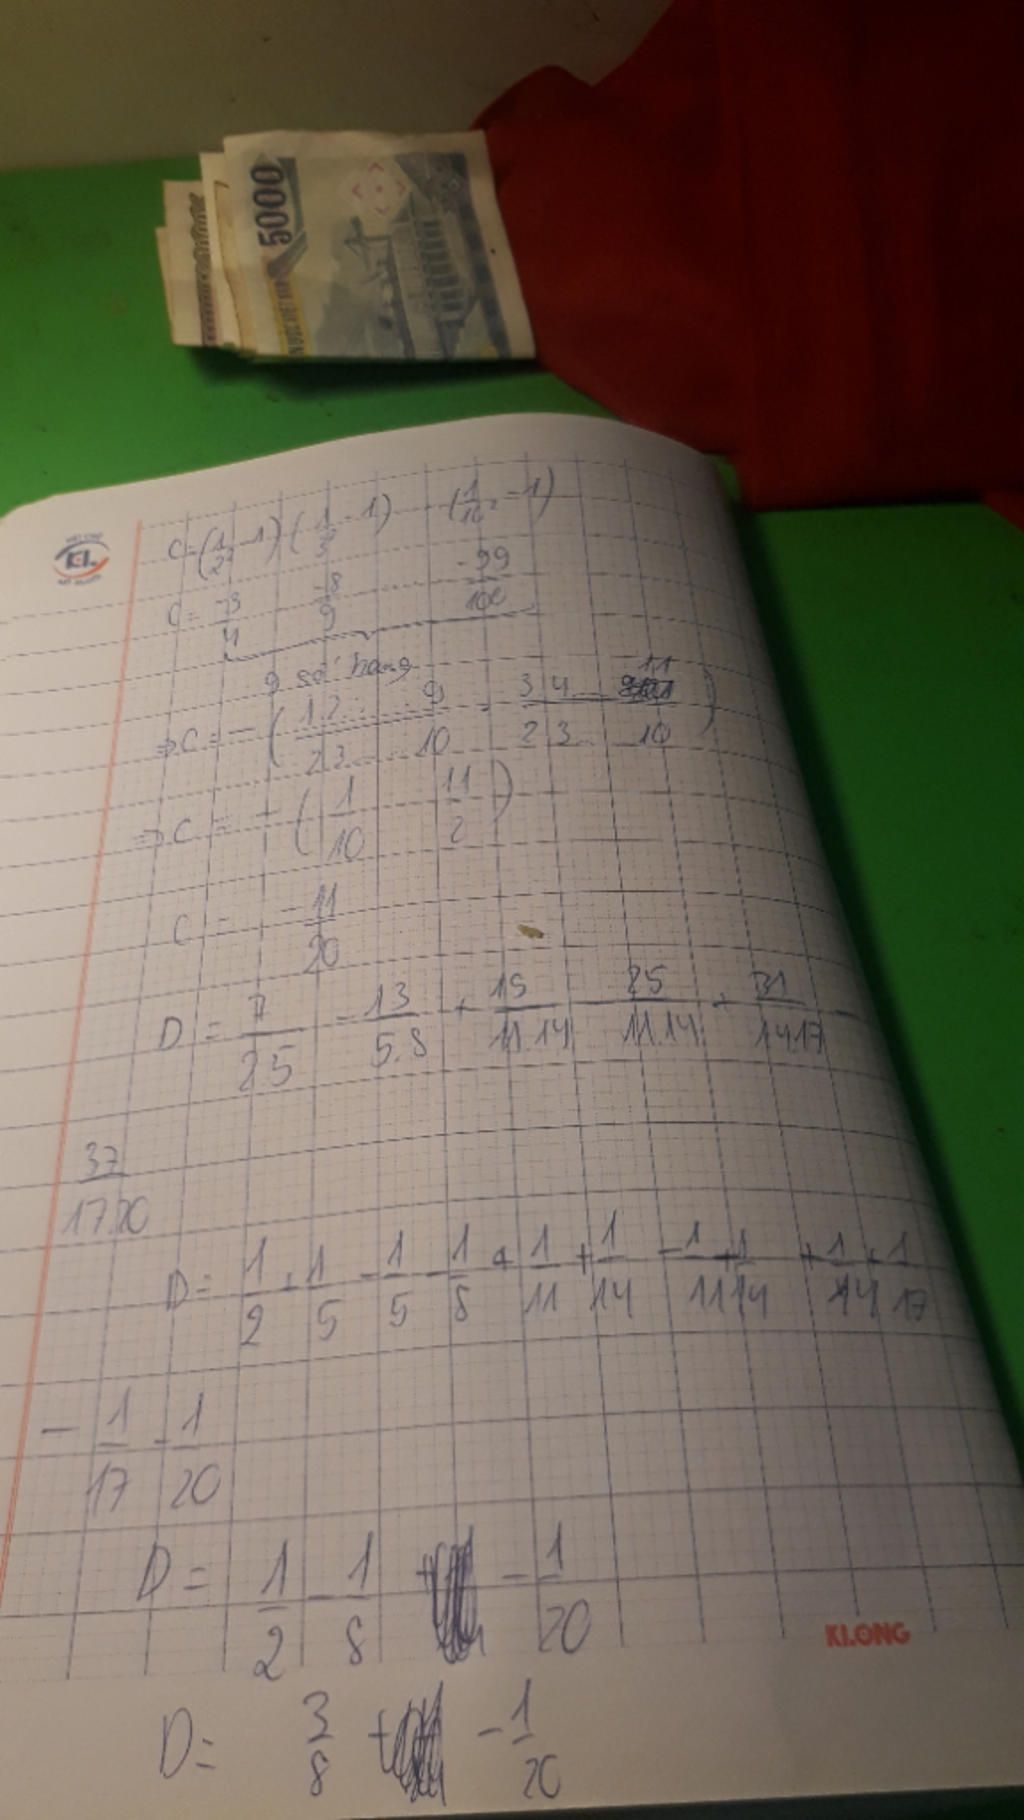 5000
KL
C = (1/2² - 1) (1/3² - 1) ... (1/10² - 1)
C = -3/4 . -8/9 ... -99/100
9 số hạng
⇒ C = - (1.2...9/2.3...10 . 3.4...11/2.3...10)
⇒ C = - (1/10 . 11/2)
C = -11/20
D = 7/2.5 - 13/5.8 + 19/11.14 - 25/11.14 + 31/14.17 -
37/17.20
D = 1/2 + 1/5 - 1/5 - 1/8 + 1/11 + 1/14 - 1/11 + 1/14 + 1/14 + 1/17
- 1/17 - 1/20
D = 1/2 - 1/8 - 1/20
D = 3/8 - 1/20
KLONG